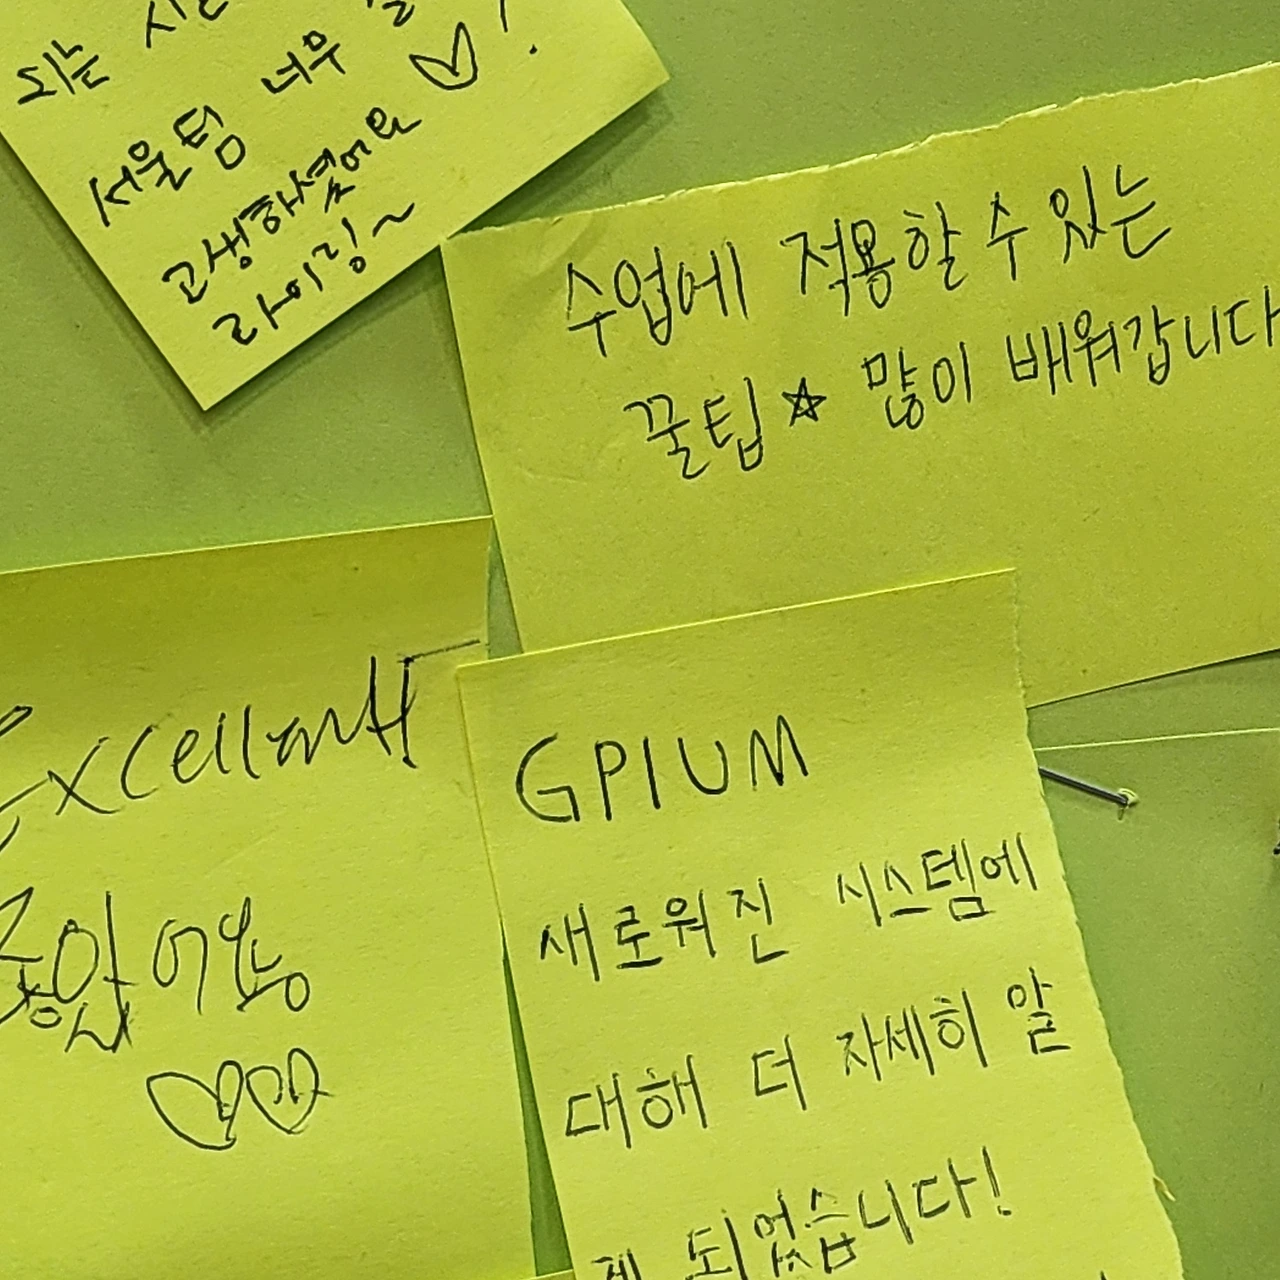 되는
서울텀 너무
고생하셨어요 ♡!
라이징~
수업에 적용할 수 있는
꿀팁☆ 많이 배워갑니다
Excellant
좋았어용
♡♡
GPIUM
새로워진 시스템에
대해 더 자세히 알
게 되었습니다!